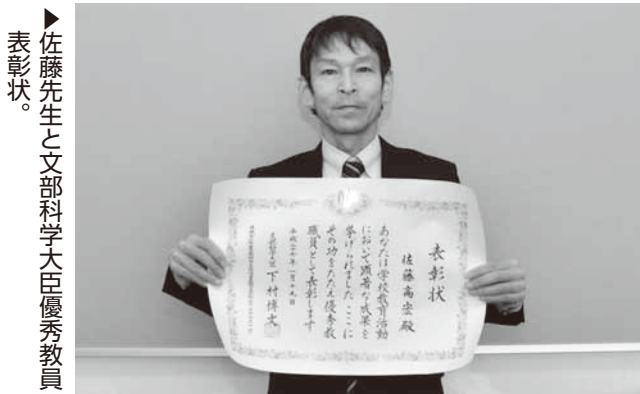 ▶佐藤先生と文部科学大臣優秀教員
表彰状。
表彰状
佐藤高宏殿
あなたは学校教育活動
において顕著な成果を
挙げられました ここに
その功をたたえ優秀教
職員として表彰します
平成二十七年一月十九日
文部科学大臣 下村博文